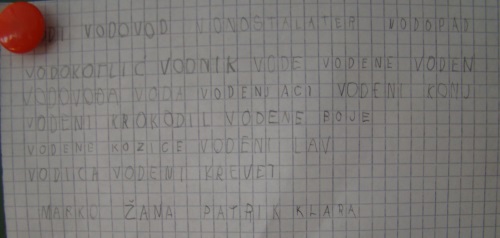 VODOVOD NOVOSTALATER VODOPAD
VODOKOTLIĆ VODNIK VODE VODENE VODEN
VODOVOĐA VODA VODENJACI VODENI KONJ
VODENI KROKODIL VODENE BOJE
VODENE KOZICE VODENI LAV
VODICA VODENI KREVET
MARKO ŽANA PATRIK KLARA